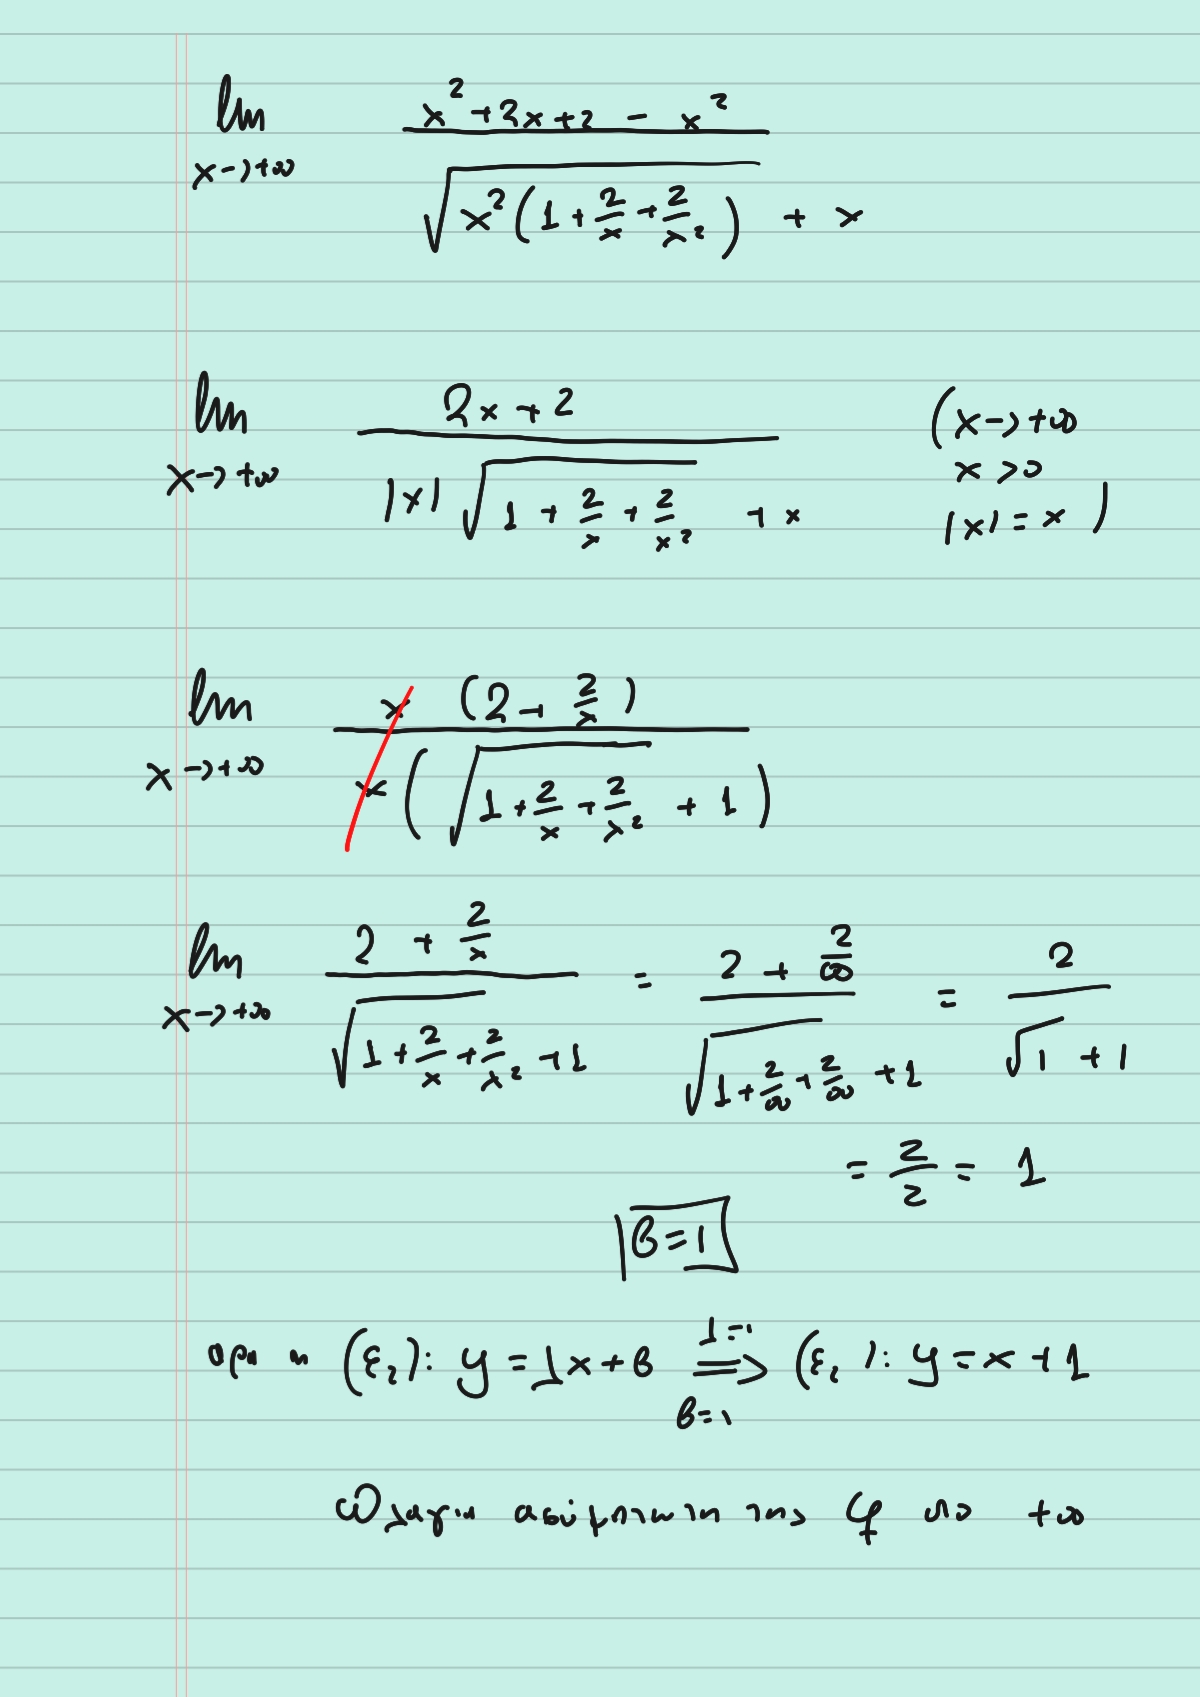 lim x→+∞ (x² + 2x + 2 - x²) / (√(x²(1 + 2/x + 2/x²)) + x)
lim x→+∞ (2x + 2) / (|x| √(1 + 2/x + 2/x²) + x) (x→+∞
x > 0
|x| = x)
lim x→+∞ x (2 + 2/x) / x (√(1 + 2/x + 2/x²) + 1)
lim x→+∞ (2 + 2/x) / (√(1 + 2/x + 2/x²) + 1) = (2 + 2/∞) / (√(1 + 2/∞ + 2/∞) + 1) = 2 / (√1 + 1)
= 2/2 = 1
β = 1
αρα η (ε₂): y = λx + β ⟹ (ε₂): y = x + 1
λ = 1
β = 1
πλαγια ασύμπτωτη της φ στο +∞